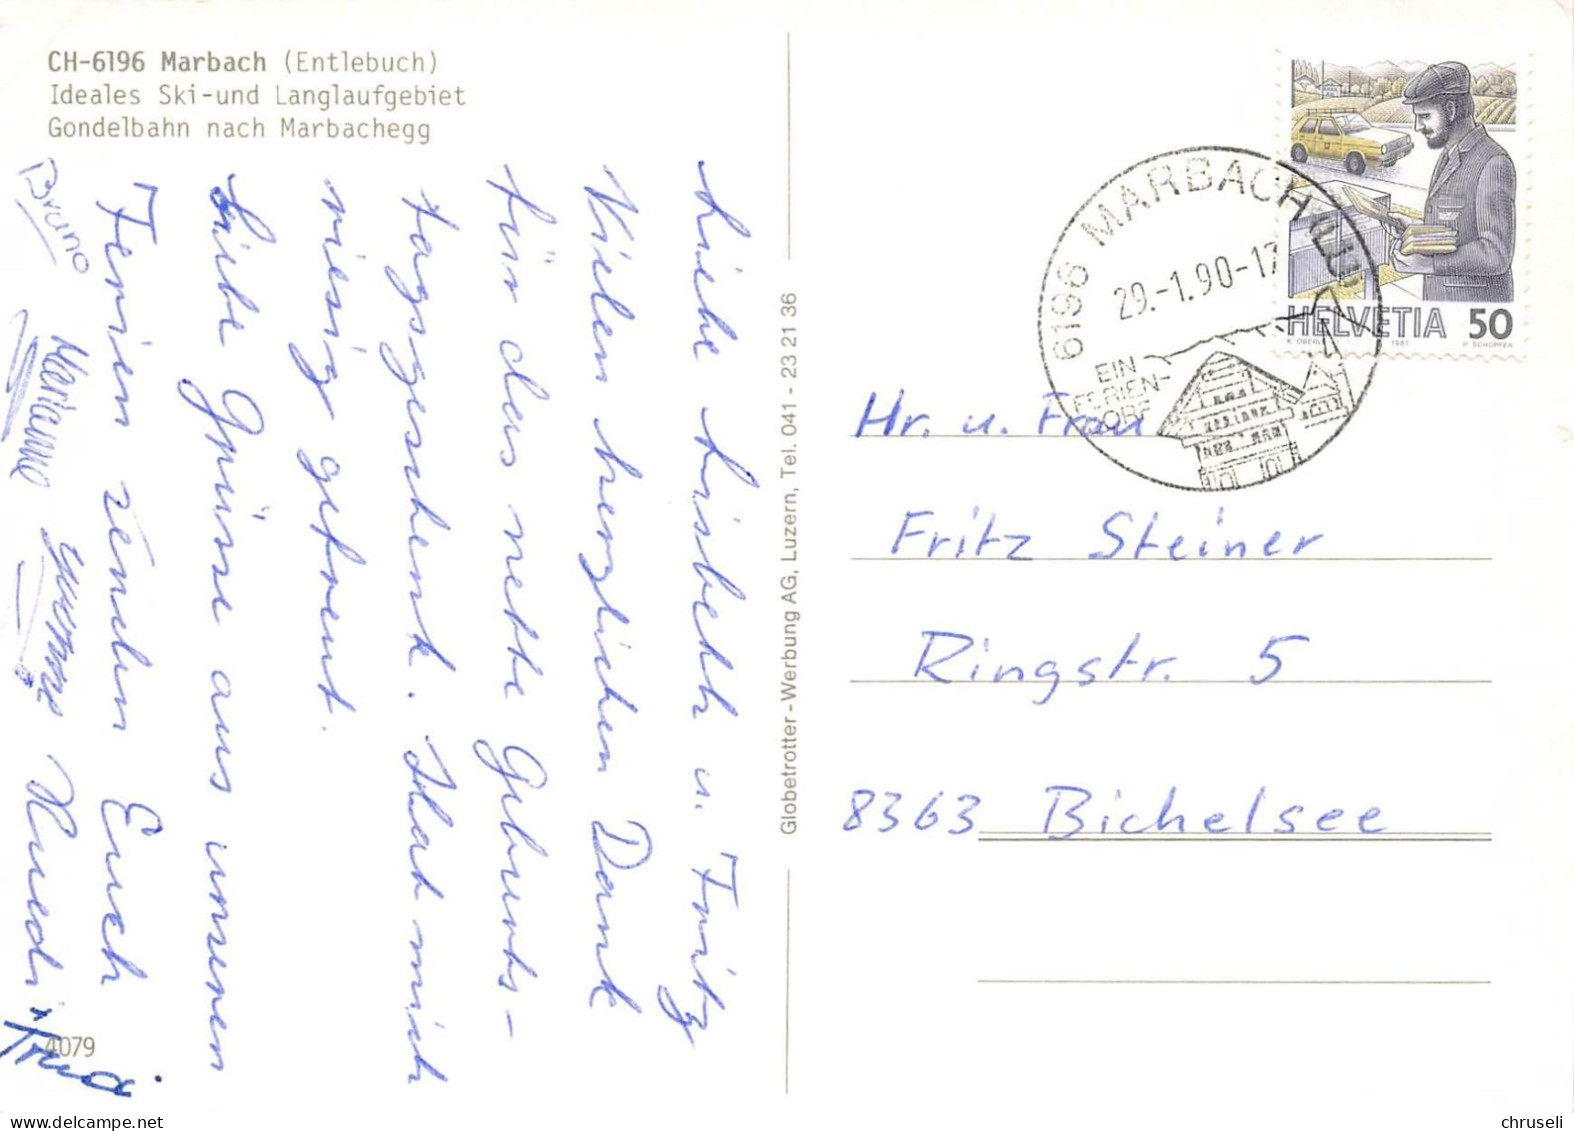 CH-6196 Marbach (Entlebuch)
Ideales Ski-und Langlaufgebiet
Gondelbahn nach Marbachegg
Liebe Lisbeth u. Fritz
Vielen herzlichen Dank
für das nette Geburts-
tagsgeschenk. Hat mich
riesig gefreut.
Liebe Grüsse aus unseren
Ferien senden Euch
Ruedi
Marianne
Bruno
Trudi
4079
Globetrotter-Werbung AG, Luzern, Tel. 041 - 23 21 36
6196 MARBACH (LU)
29.-1.90-17
EIN
FERIEN-
DORF
HELVETIA 50
K. OBERLI 1987 P. SCHOPFER
Hr. u. Frau
Fritz Steiner
Ringstr. 5
8363 Bichelsee
chruseli